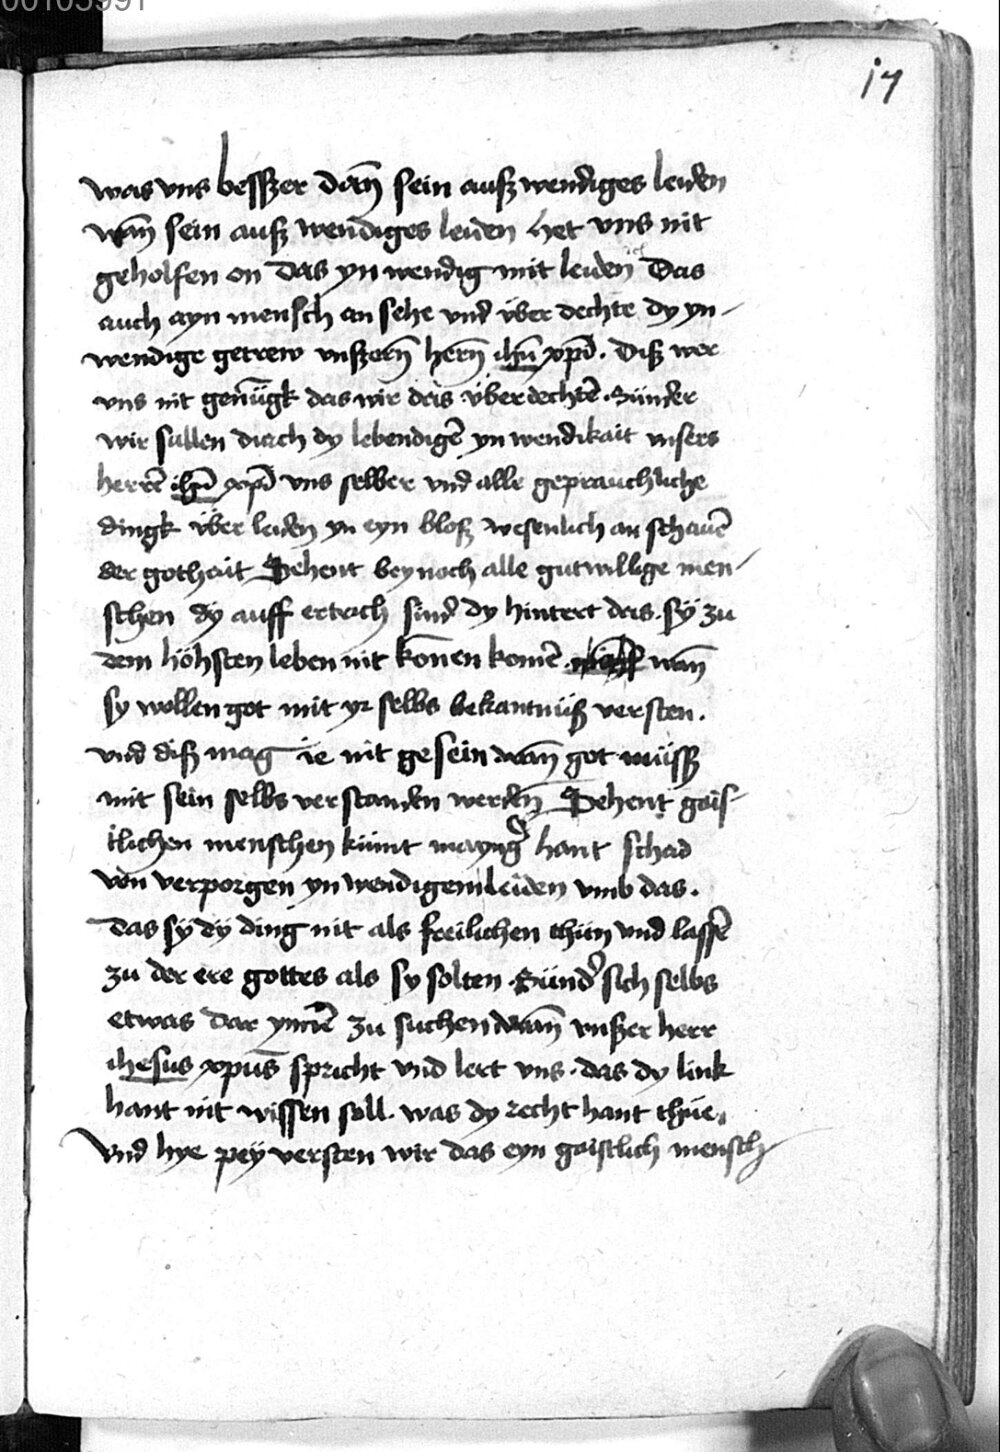 00105991
17
was vns besszer dañ sein ausz wendiges leiden
wañ sein ausz wendiges leiden het vns nit
geholfen on das yn wendig mit leiden Das
auch ayn mensch an sehe vnd vber dechte dy yn-
wendige getrew vnszerñ herñ ihū xp̄i. Disz wer
vns nit genūgk das wir das v̈berdechtē. Sünder
wir sullen durch dy lebendigē yn wendikait vnsers
herrē ihū xp̄i vns selber vnd alle geprauchliche
dingk v̈ber leiden yn eyn blosz wesenlich an schauē
der gothait Sehent bey noch alle gutwillige men-
schen dy auff ertrich sind dy hintert das. sÿ zu
dem höhsten leben nit kōnen komē wañ
sy wollen got mit yr selbs bekantnüsz versten.
vnd disz mag ie nit gesein wañ got müssz
mit sein selbs verstanden werdeñ Sehent gais-
tlichen menschen kümt mayng̉ hant schad
von verporgen yn wendigem leiden vmb das.
das sÿ dÿ ding nit als freilichen thün vnd lassē
zu der ere gottes als sy solten. Sünd̉ sich selbs
etwas dar ynnē zu suchen wañ vnszer herr
ihesus xp̄us spricht vnd lert vns. das dy link
hant nit wissen soll. was dy recht hant thüe.
Vnd hye peÿ versten wir das eyn gaistlich mensch